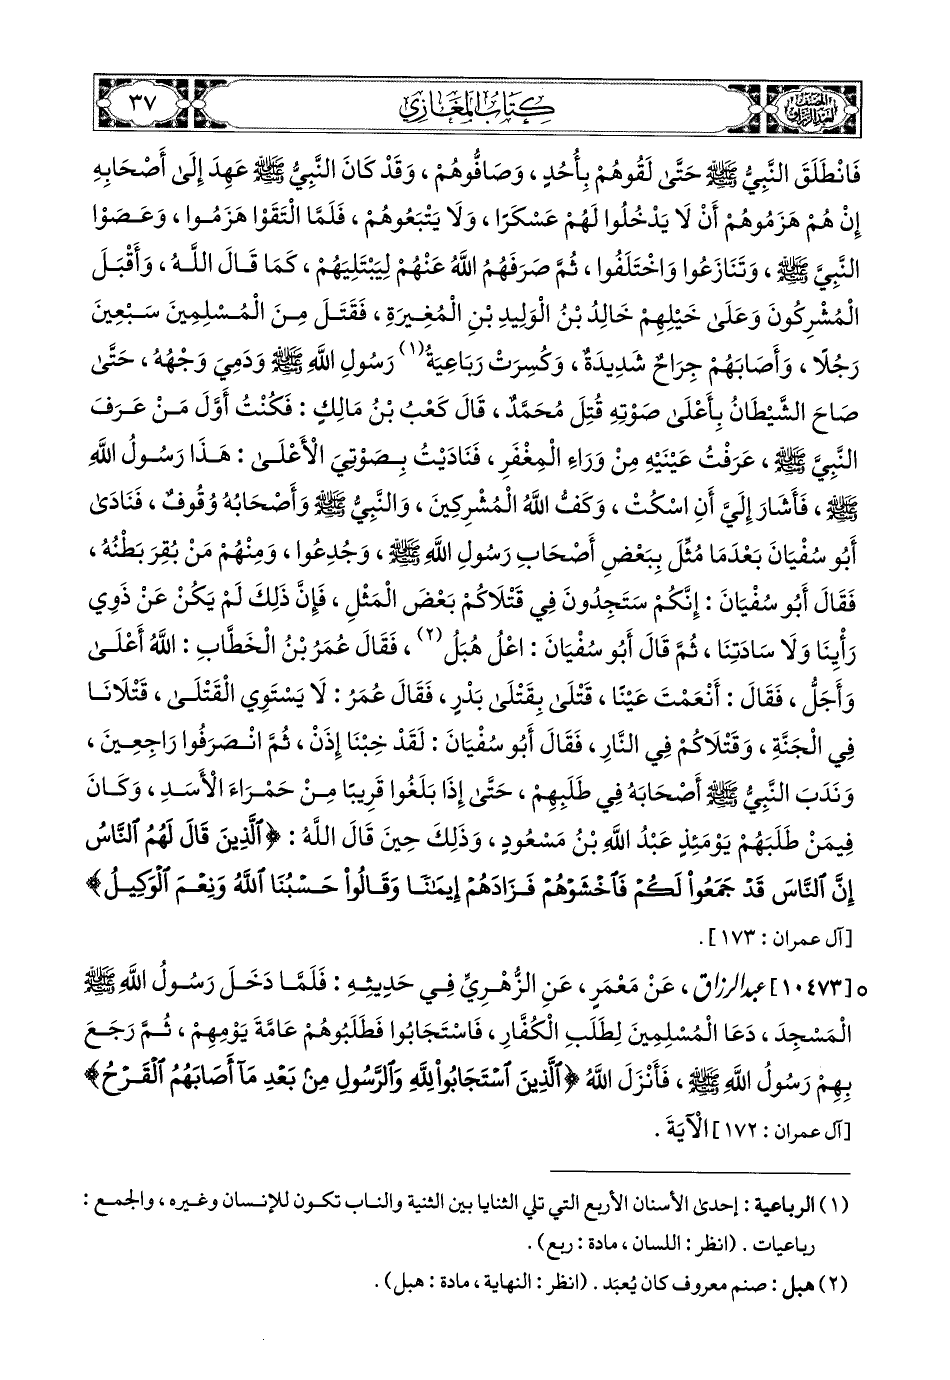 المصنف للإمام عبد الرزاق
كتاب المغازي
٣٧
فَانْطَلَقَ النَّبِيُّ ﷺ حَتَّىٰ لَقُوهُمْ بِأُحُدٍ ، وَصَافُّوهُمْ ، وَقَدْ كَانَ النَّبِيُّ ﷺ عَهِدَ إِلَىٰ أَصْحَابِهِ
إِنْ هُمْ هَزَمُوهُمْ أَنْ لَا يَدْخُلُوا لَهُمْ عَسْكَرًا ، وَلَا يَتْبَعُوهُمْ ، فَلَمَّا الْتَقَوْا هَزَمُوا ، وَعَصَوْا
النَّبِيَّ ﷺ ، وَتَنَازَعُوا وَاخْتَلَفُوا ، ثُمَّ صَرَفَهُمُ اللَّهُ عَنْهُمْ لِيَبْتَلِيَهُمْ ، كَمَا قَالَ اللَّهُ ، وَأَقْبَلَ
الْمُشْرِكُونَ وَعَلَىٰ خَيْلِهِمْ خَالِدُ بْنُ الْوَلِيدِ بْنِ الْمُغِيرَةِ ، فَقَتَلَ مِنَ الْمُسْلِمِينَ سَبْعِينَ
رَجُلًا ، وَأَصَابَهُمْ جِرَاحٌ شَدِيدَةٌ ، وَكُسِرَتْ رَبَاعِيَةُ(١) رَسُولِ اللَّهِ ﷺ وَدَمِيَ وَجْهُهُ ، حَتَّىٰ
صَاحَ الشَّيْطَانُ بِأَعْلَىٰ صَوْتِهِ قُتِلَ مُحَمَّدٌ ، قَالَ كَعْبُ بْنُ مَالِكٍ : فَكُنْتُ أَوَّلَ مَنْ عَرَفَ
النَّبِيَّ ﷺ ، عَرَفْتُ عَيْنَيْهِ مِنْ وَرَاءِ الْمِغْفَرِ ، فَنَادَيْتُ بِصَوْتِيَ الْأَعْلَىٰ : هَذَا رَسُولُ اللَّهِ
ﷺ ، فَأَشَارَ إِلَيَّ أَنِ اسْكُتْ ، وَكَفَّ اللَّهُ الْمُشْرِكِينَ ، وَالنَّبِيُّ ﷺ وَأَصْحَابُهُ وُقُوفٌ ، فَنَادَىٰ
أَبُو سُفْيَانَ بَعْدَمَا مُثِّلَ بِبَعْضِ أَصْحَابِ رَسُولِ اللَّهِ ﷺ ، وَجُدِعُوا ، وَمِنْهُمْ مَنْ بُقِرَ بَطْنُهُ ،
فَقَالَ أَبُو سُفْيَانَ : إِنَّكُمْ سَتَجِدُونَ فِي قَتْلَاكُمْ بَعْضَ الْمَثْلِ ، فَإِنَّ ذَلِكَ لَمْ يَكُنْ عَنْ ذَوِي
رَأْيِنَا وَلَا سَادَتِنَا ، ثُمَّ قَالَ أَبُو سُفْيَانَ : اعْلُ هُبَلُ(٢) ، فَقَالَ عُمَرُ بْنُ الْخَطَّابِ : اللَّهُ أَعْلَىٰ
وَأَجَلُّ ، فَقَالَ : أَنْعَمْتَ عَيْنًا ، قَتْلَىٰ بِقَتْلَىٰ بَدْرٍ ، فَقَالَ عُمَرُ : لَا يَسْتَوِي الْقَتْلَىٰ ، قَتْلَانَا
فِي الْجَنَّةِ ، وَقَتْلَاكُمْ فِي النَّارِ ، فَقَالَ أَبُو سُفْيَانَ : لَقَدْ خِبْنَا إِذَنْ ، ثُمَّ انْصَرَفُوا رَاجِعِينَ ،
وَنَدَبَ النَّبِيُّ ﷺ أَصْحَابَهُ فِي طَلَبِهِمْ ، حَتَّىٰ إِذَا بَلَغُوا قَرِيبًا مِنْ حَمْرَاءَ الْأَسَدِ ، وَكَانَ
فِيمَنْ طَلَبَهُمْ يَوْمَئِذٍ عَبْدُ اللَّهِ بْنُ مَسْعُودٍ ، وَذَلِكَ حِينَ قَالَ اللَّهُ : ﴿ ٱلَّذِينَ قَالَ لَهُمُ ٱلنَّاسُ
إِنَّ ٱلنَّاسَ قَدْ جَمَعُواْ لَكُمْ فَٱخْشَوْهُمْ فَزَادَهُمْ إِيمَٰنًا وَقَالُواْ حَسْبُنَا ٱللَّهُ وَنِعْمَ ٱلْوَكِيلُ ﴾
[آل عمران : ١٧٣] .
○ [١٠٤٧٣] عبد الرزاق ، عَنْ مَعْمَرٍ ، عَنِ الزُّهْرِيِّ فِي حَدِيثِهِ : فَلَمَّا دَخَلَ رَسُولُ اللَّهِ ﷺ
الْمَسْجِدَ ، دَعَا الْمُسْلِمِينَ لِطَلَبِ الْكُفَّارِ ، فَاسْتَجَابُوا فَطَلَبُوهُمْ عَامَّةَ يَوْمِهِمْ ، ثُمَّ رَجَعَ
بِهِمْ رَسُولُ اللَّهِ ﷺ ، فَأَنْزَلَ اللَّهُ ﴿ ٱلَّذِينَ ٱسْتَجَابُواْ لِلَّهِ وَٱلرَّسُولِ مِنۢ بَعْدِ مَآ أَصَابَهُمُ ٱلْقَرْحُ ﴾
[آل عمران : ١٧٢] الْآيَةَ .
(١) الرباعية : إحدىٰ الأسنان الأربع التي تلي الثنايا بين الثنية والناب تكون للإنسان وغيره ، والجمع :
رباعيات . (انظر : اللسان ، مادة : ربع) .
(٢) هبل : صنم معروف كان يُعبَد . (انظر : النهاية ، مادة : هبل) .